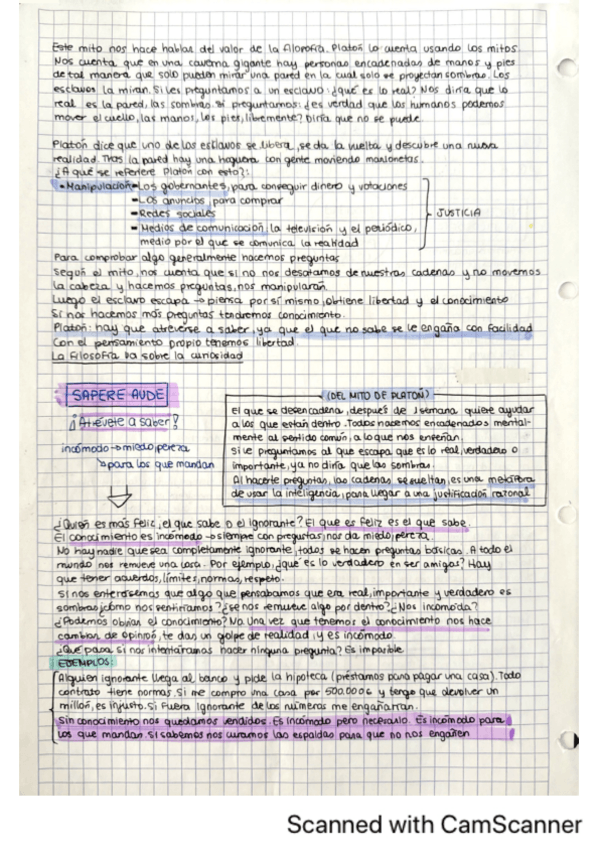 Este mito nos hace hablar del valor de la filorofía. Platón lo cuenta usando los mitos.
Nos cuenta que en una caverna gigante hay personas encadenadas de manos y pies
de tal manera que solo pueden mirar una pared en la cual solo se proyectan sombras. Los
esclavos la miran. Si les preguntamos a un esclavo: ¿qué es lo real? Nos diría que lo
real es la pared, las sombras. Si preguntamos: ¿es verdad que los humanos podemos
mover el cuello, las manos, los pies, libremente? Diría que no se puede.
Platón dice que uno de los esclavos se libera, se da la vuelta y descubre una nueva
realidad. Tras la pared hay una hoguera con gente moviendo marionetas.
¿A qué se refiere Platón con esto?:
• Manipulación → Los gobernantes, para conseguir dinero y votaciones
→ Los anuncios, para comprar
→ Redes sociales
→ Medios de comunicación, la televisión y el periódico,
medio por el que se comunica la realidad
JUSTICIA
Para comprobar algo generalmente hacemos preguntas
Según el mito, nos cuenta que si no nos desatamos de nuestras cadenas y no movemos
la cabeza y hacemos preguntas, nos manipularan
Luego el esclavo escapa → piensa por sí mismo, obtiene libertad y el conocimiento
Si nos hacemos más preguntas tendremos conocimiento.
Platón: hay que atreverse a saber, ya que el que no sabe se le engaña con facilidad
Con el pensamiento propio tenemos libertad.
La filosofía va sobre la curiosidad
SAPERE AUDE
¡Atrévete a saber!
incómodo → miedo, pereza
para los que mandan
(DEL MITO DE PLATÓN)
El que se desencadena, después de 1 semana quiere ayudar
a los que están dentro. Todos nacemos encadenados mental-
mente al sentido común, a lo que nos enseñan.
Si le preguntamos al que escapa que es lo real, verdadero o
importante, ya no diría que las sombras.
Al hacerte preguntas, las cadenas se sueltan, es una metáfora
de usar la inteligencia, para llegar a una justificación razonal
¿Quién es más feliz, el que sabe o el ignorante? El que es feliz es el que sabe.
El conocimiento es incómodo → siempre con preguntas, nos da miedo, pereza.
No hay nadie que sea completamente ignorante, todos se hacen preguntas básicas. A todo el
mundo nos remueve una cosa. Por ejemplo, ¿qué es lo verdadero en ser amigos? Hay
que tener acuerdos, límites, normas, respeto.
Si nos enterásemos que algo que pensábamos que era real, importante y verdadero es
sombras ¿cómo nos sentiríamos? ¿se nos remueve algo por dentro? ¿Nos incomoda?
¿Podemos obviar el conocimiento? No. Una vez que tenemos el conocimiento nos hace
cambiar de opinión, te das un golpe de realidad, y es incómodo.
¿Qué pasa si nos intentáramos hacer ninguna pregunta? Es imposible
EJEMPLOS:
Alguien ignorante llega al banco y pide la hipoteca (préstamos para pagar una casa). Todo
contrato tiene normas. Si me compro una casa por 500.000€ y tengo que devolver un
millón, es injusto. Si fuera ignorante de los números me engañarían.
Sin conocimiento nos quedamos vendidos. Es incómodo pero necesario. Es incómodo para
los que mandan. Si sabemos nos curamos las espaldas para que no nos engañen
Scanned with CamScanner